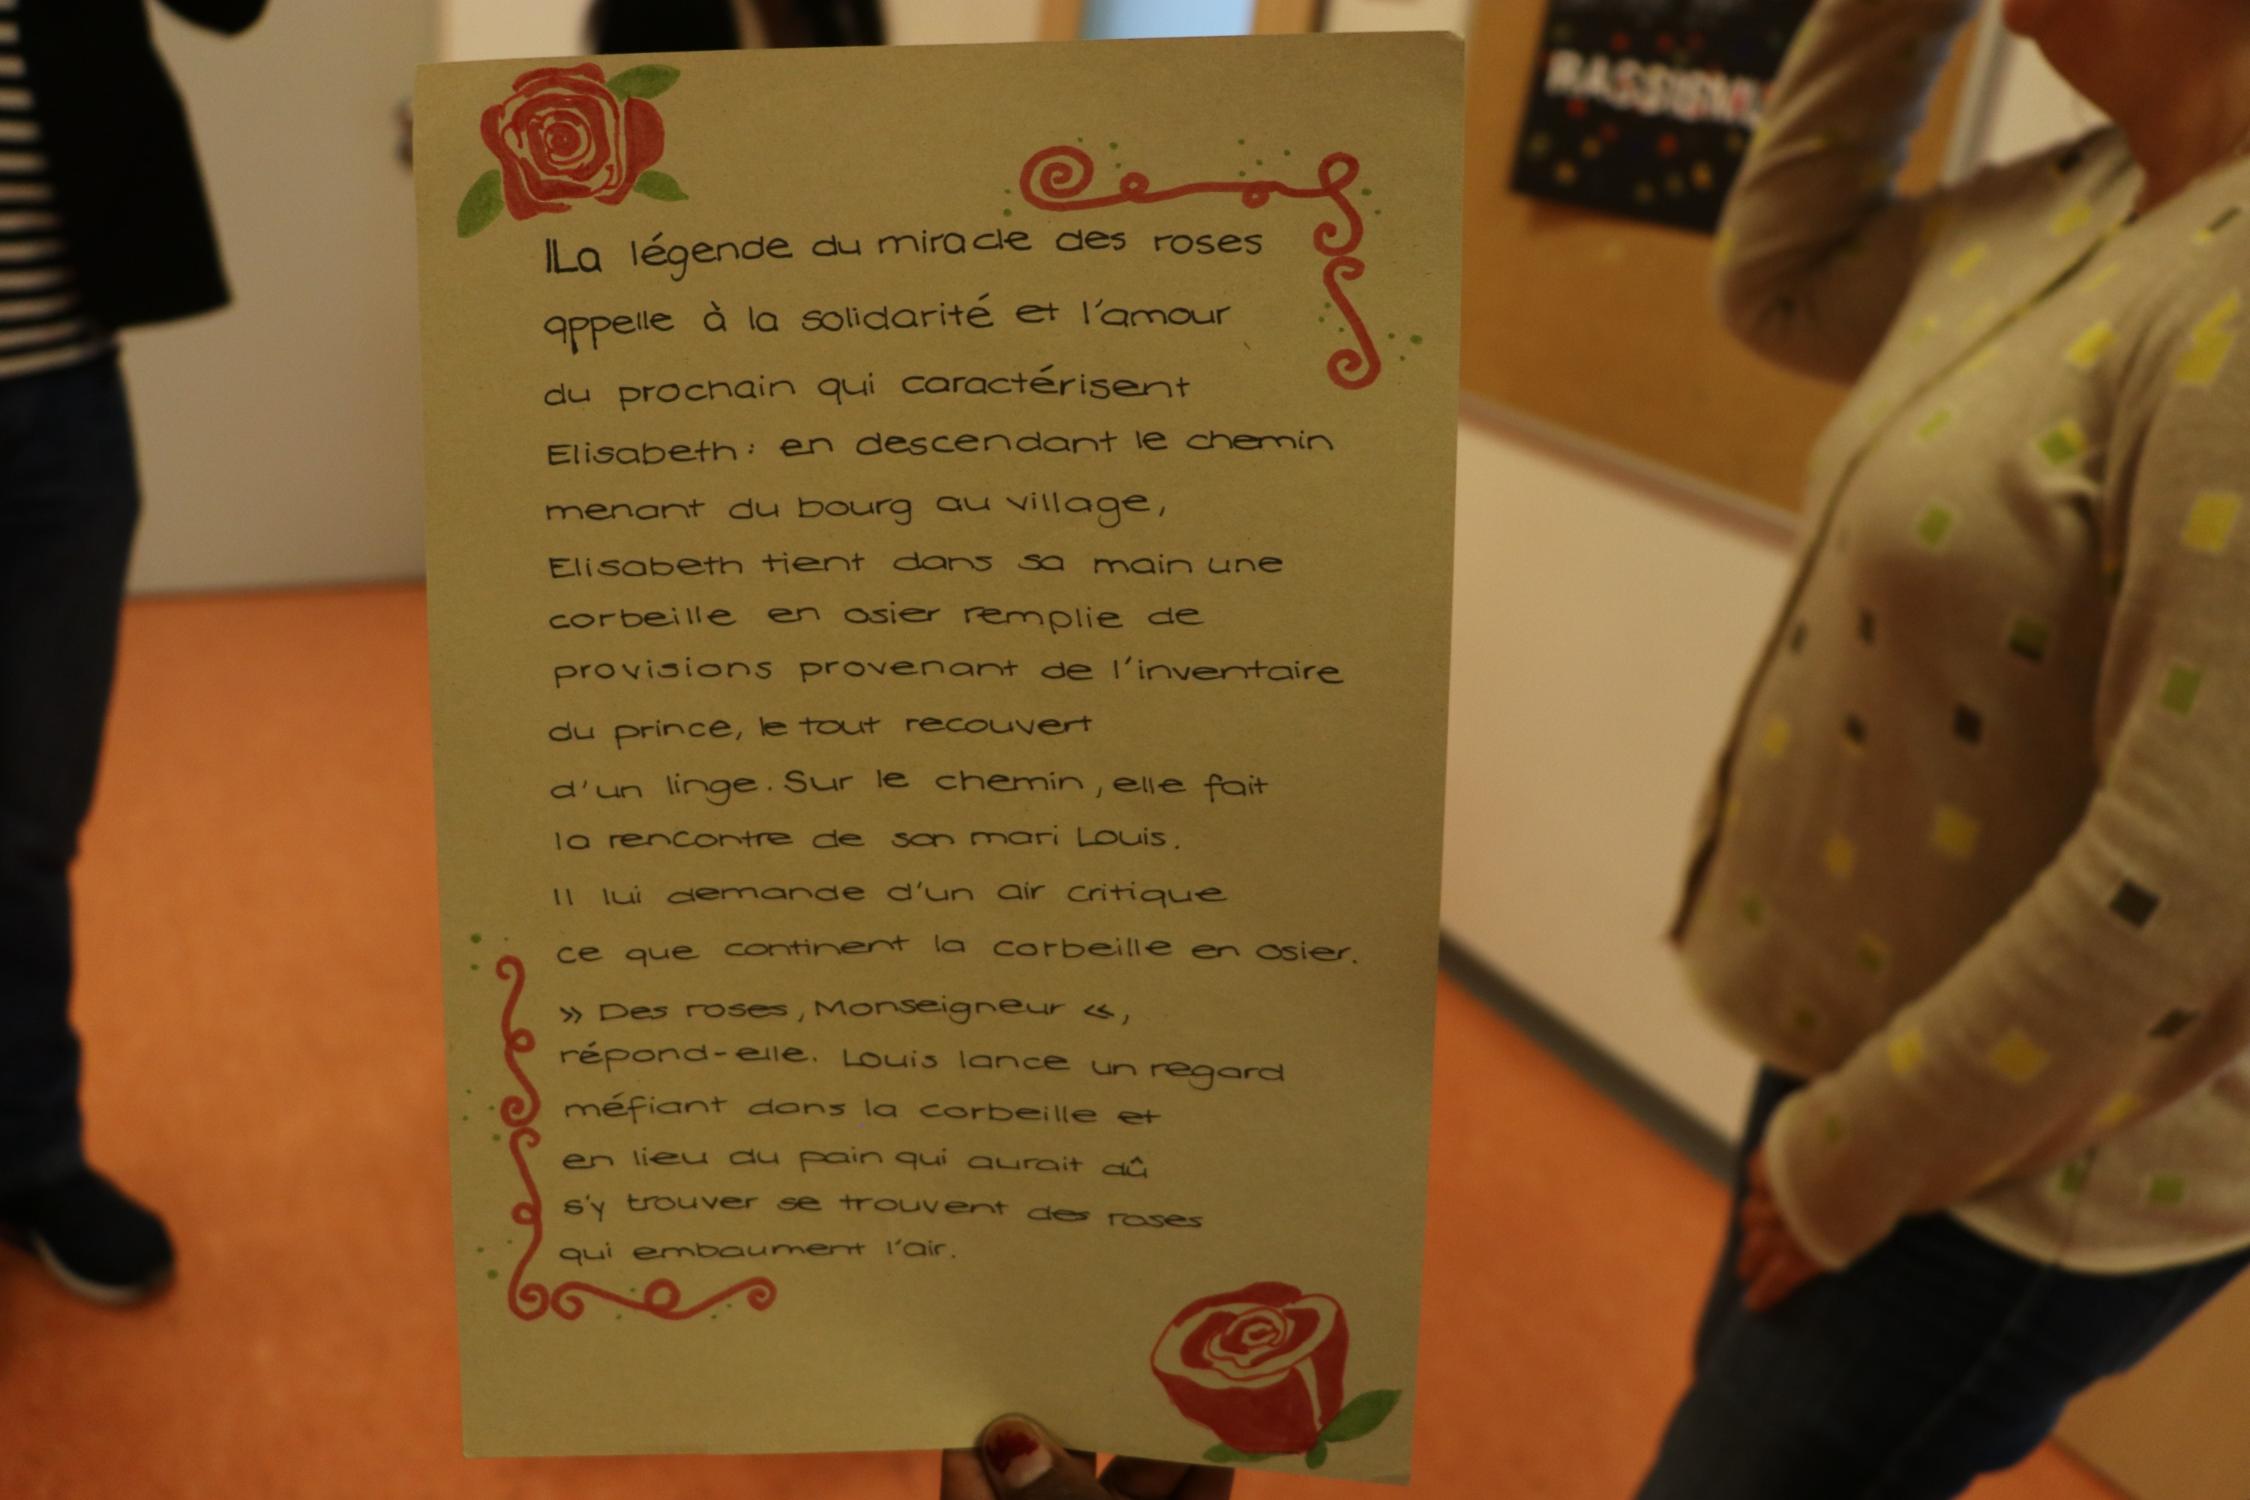 La légende du miracle des roses
appelle à la solidarité et l'amour
du prochain qui caractérisent
Elisabeth: en descendant le chemin
menant du bourg au village,
Elisabeth tient dans sa main une
corbeille en osier remplie de
provisions provenant de l'inventaire
du prince, le tout recouvert
d'un linge. Sur le chemin, elle fait
la rencontre de son mari Louis.
Il lui demande d'un air critique
ce que continent la corbeille en osier.
» Des roses, Monseigneur «,
répond-elle. Louis lance un regard
méfiant dans la corbeille et
en lieu du pain qui aurait dû
s'y trouver se trouvent des roses
qui embaument l'air.